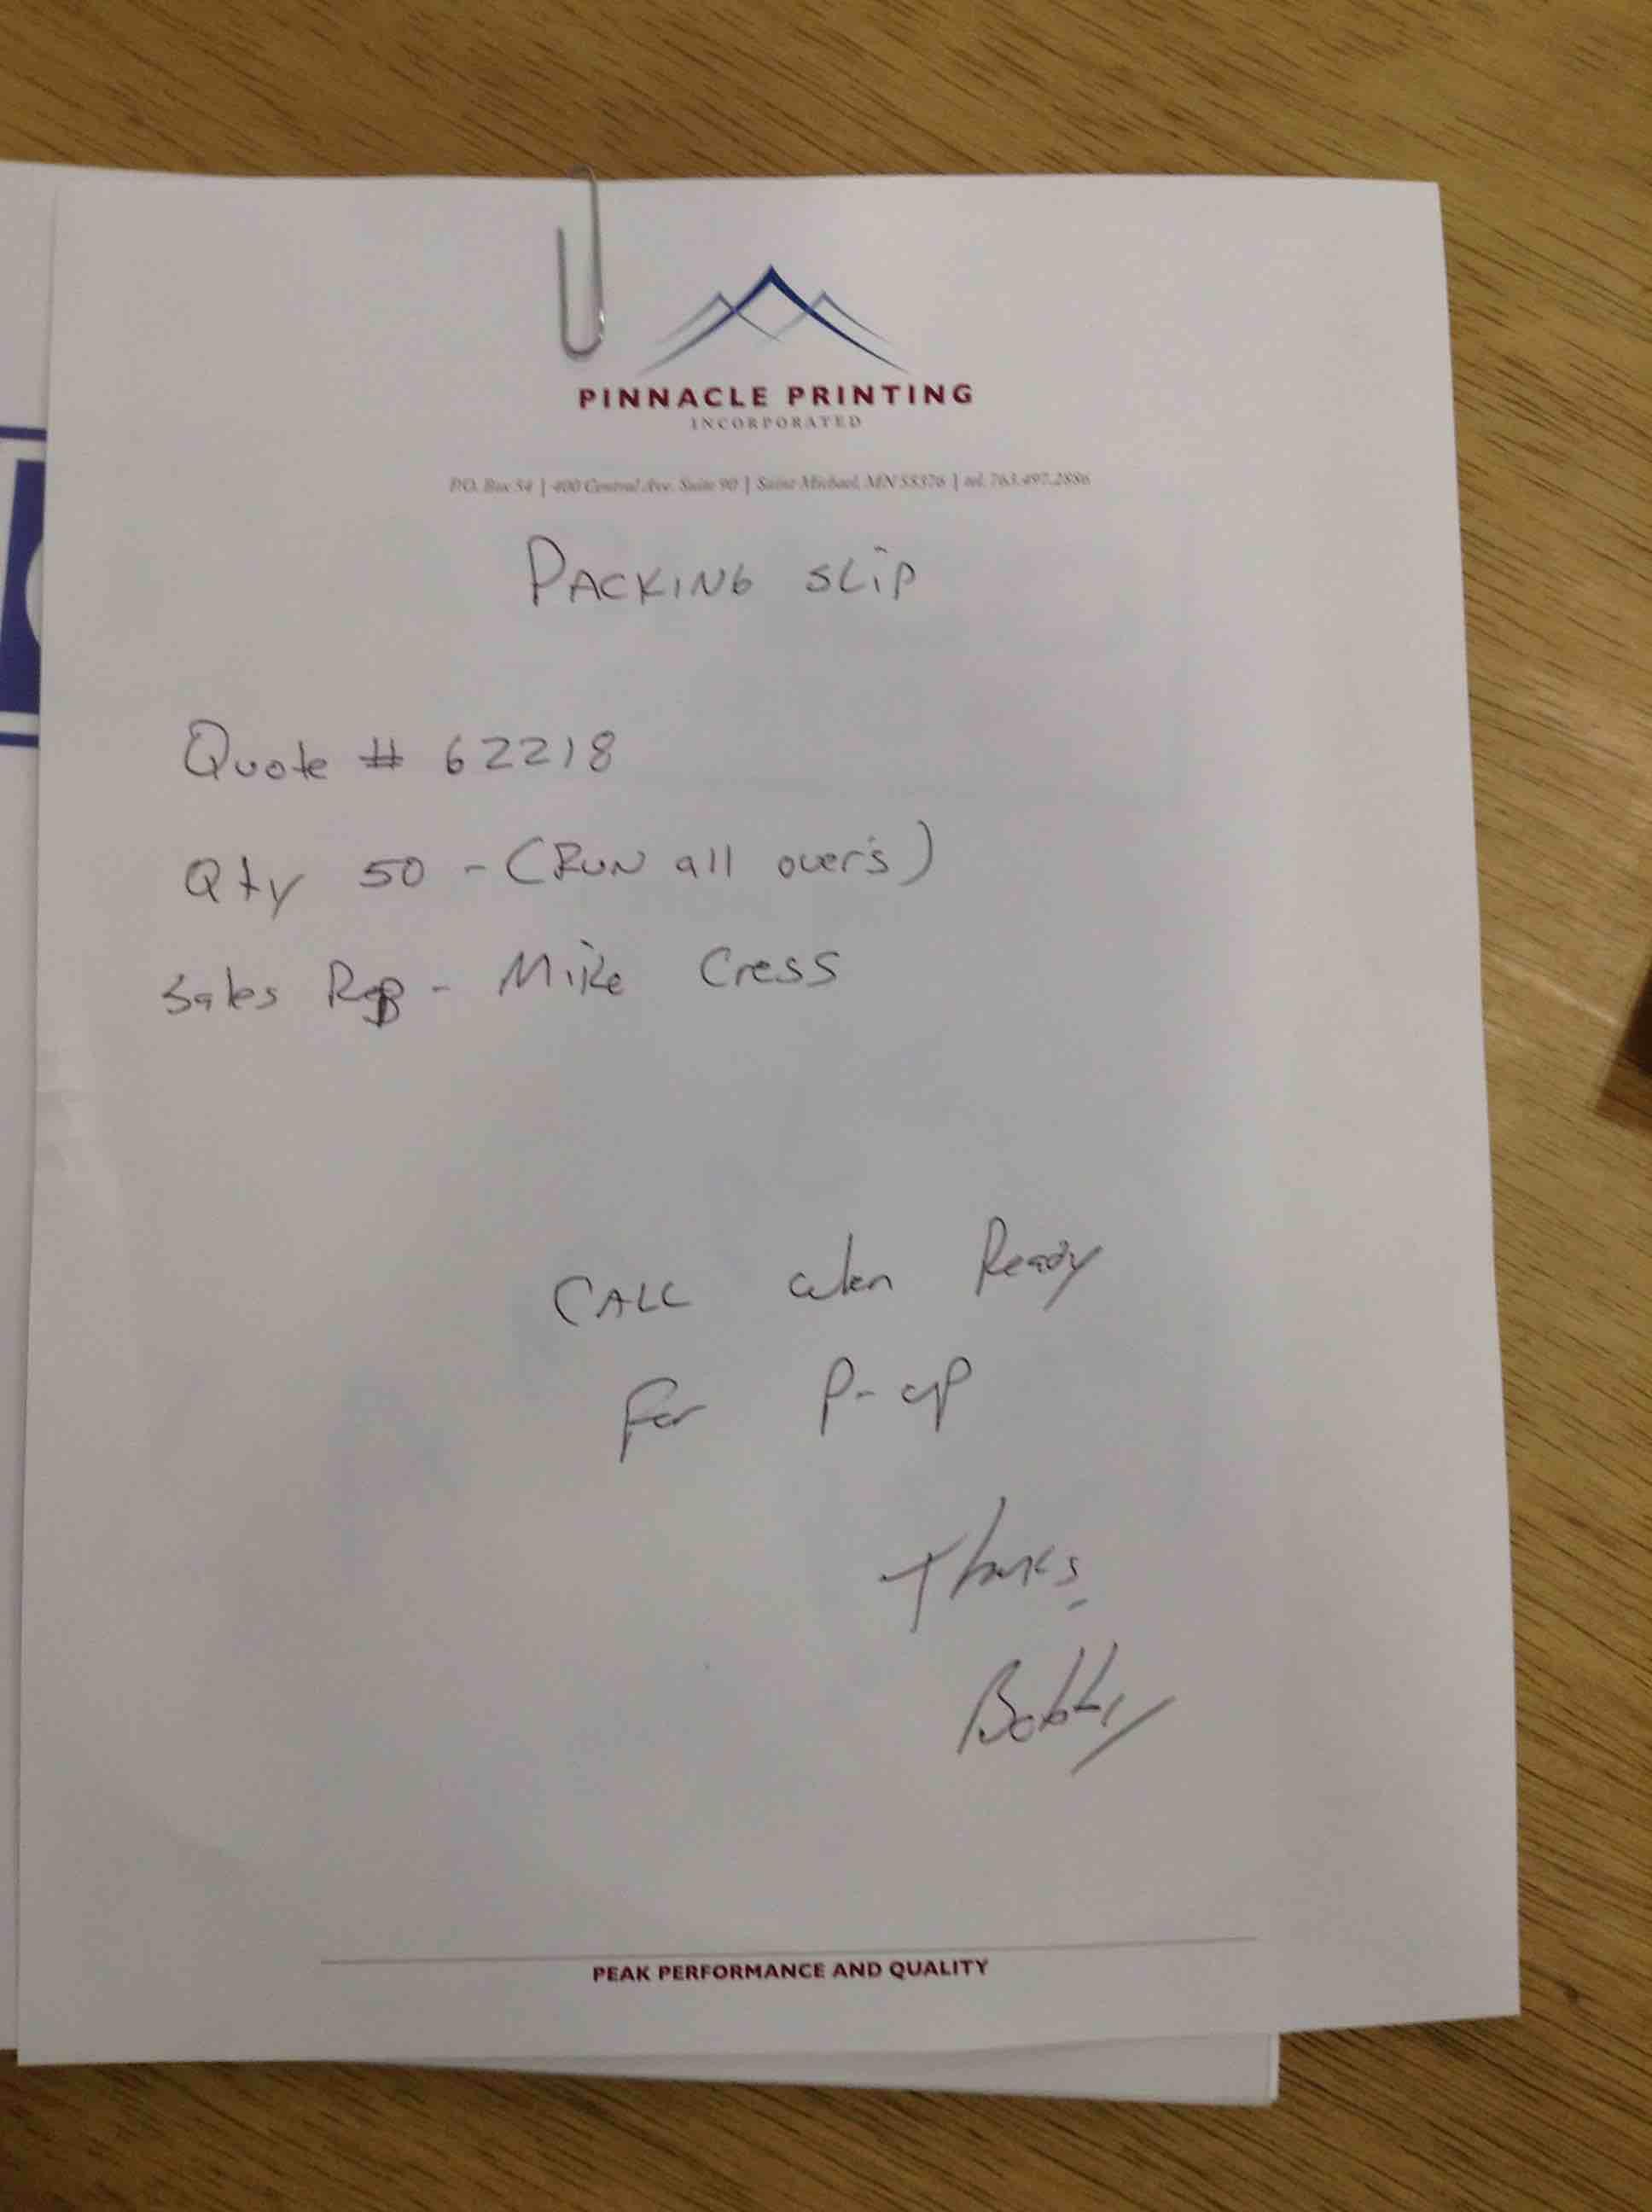 PINNACLE PRINTING
INCORPORATED
P.O. Box 54 | 400 Central Ave. Suite 90 | Saint Michael, MN 55376 | tel. 763.497.2886
PACKING SLiP
Quote # 62218
Qty 50 - (RUN all over's)
Sales Rep - Mike Cress
CALL when Ready
For P-up
Thanks
Bobby
PEAK PERFORMANCE AND QUALITY